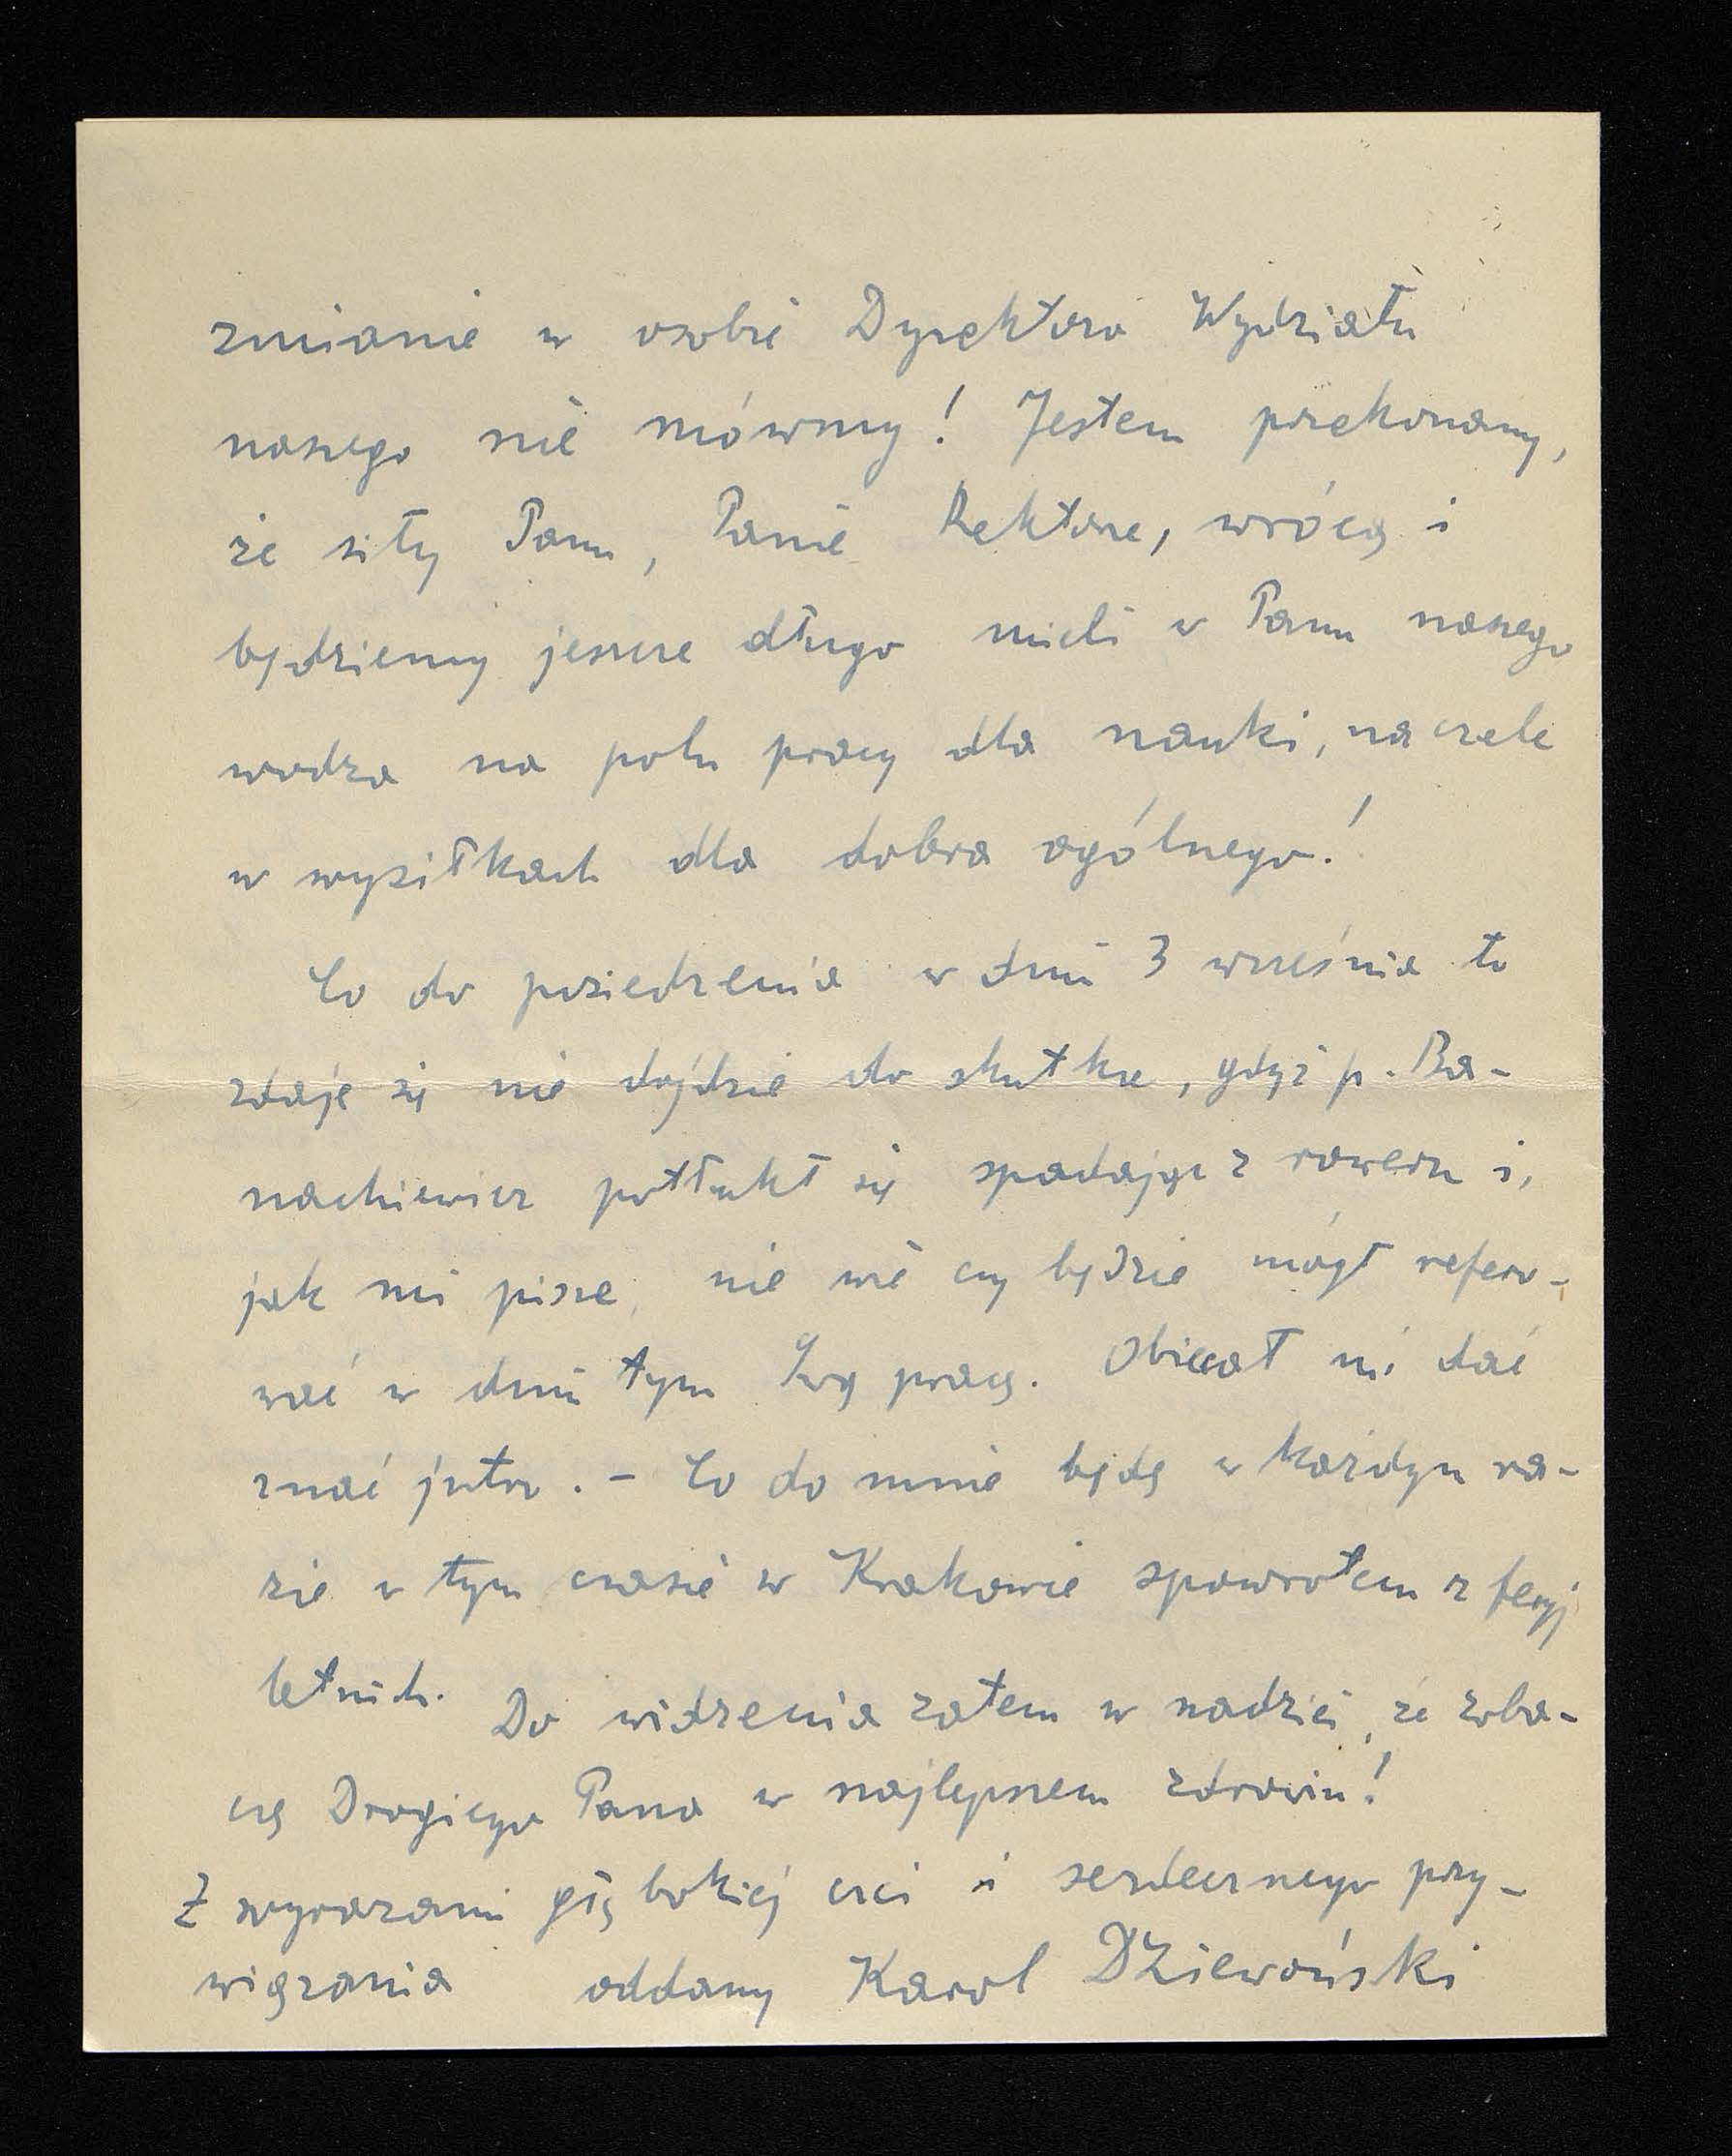 zmianie w osobie Dyrektora Wydziału
naszego nie mówmy! Jestem przekonany,
że siły Panu, Panie Rektorze, wrócą i
będziemy jeszcze długo mieli w Panu naszego
wodza na polu pracy dla nauki, na czele
w wysiłkach dla dobra ogólnego!
Co do posiedzenia w dniu 3 września to
zdaje się nie dojdzie do skutku, gdyż p. Ba-
nachiewicz potłukł się spadając z roweru i,
jak mi pisze, nie wie czy będzie mógł refero-
wać w dniu tym Swą pracę. Obiecał mi dać
znać jutro. - Co do mnie będę w każdym ra-
zie w tym czasie w Krakowie spowrotem z feryj
letnich. Do widzenia zatem w nadziei, że zoba-
czę Drogiego Pana w najlepszem zdrowiu!
Z wyrazami głębokiej czci i serdecznego przy-
wiązania oddany Karol Dziewoński